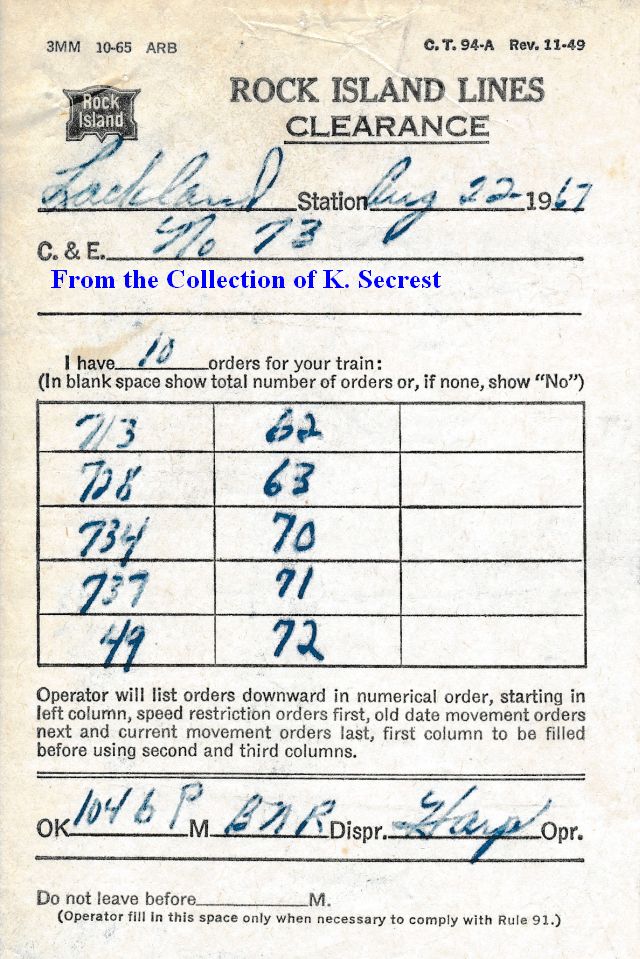 3MM 10-65 ARB C. T. 94-A Rev. 11-49
Rock Island
ROCK ISLAND LINES
CLEARANCE
Lackland Station Aug 22 1967
C. & E. No 73
From the Collection of K. Secrest
I have 10 orders for your train:
(In blank space show total number of orders or, if none, show “No”)
713 62
728 63
734 70
737 71
49 72
Operator will list orders downward in numerical order, starting in
left column, speed restriction orders first, old date movement orders
next and current movement orders last, first column to be filled
before using second and third columns.
OK 1046 P M BNR Dispr. Harp Opr.
Do not leave before M.
(Operator fill in this space only when necessary to comply with Rule 91.)